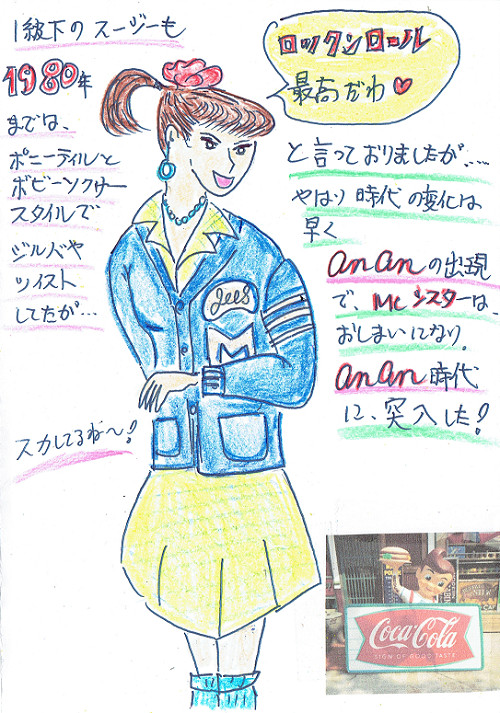 1級下のスージーも
1980年
までは、
ポニーテイルと
ボビーソクサー
スタイルで
ジルバや
ツイスト
してたが…
スカしてるね〜!
ロックンロール
最高だわ♥
と言っておりましたが.....
やはり時代の変化は
早く
ananの出現
で、Mcシスターは、
おしまいになり、
anan時代
に、突入した!
Jees
M
Coca-Cola
SIGN OF GOOD TASTE